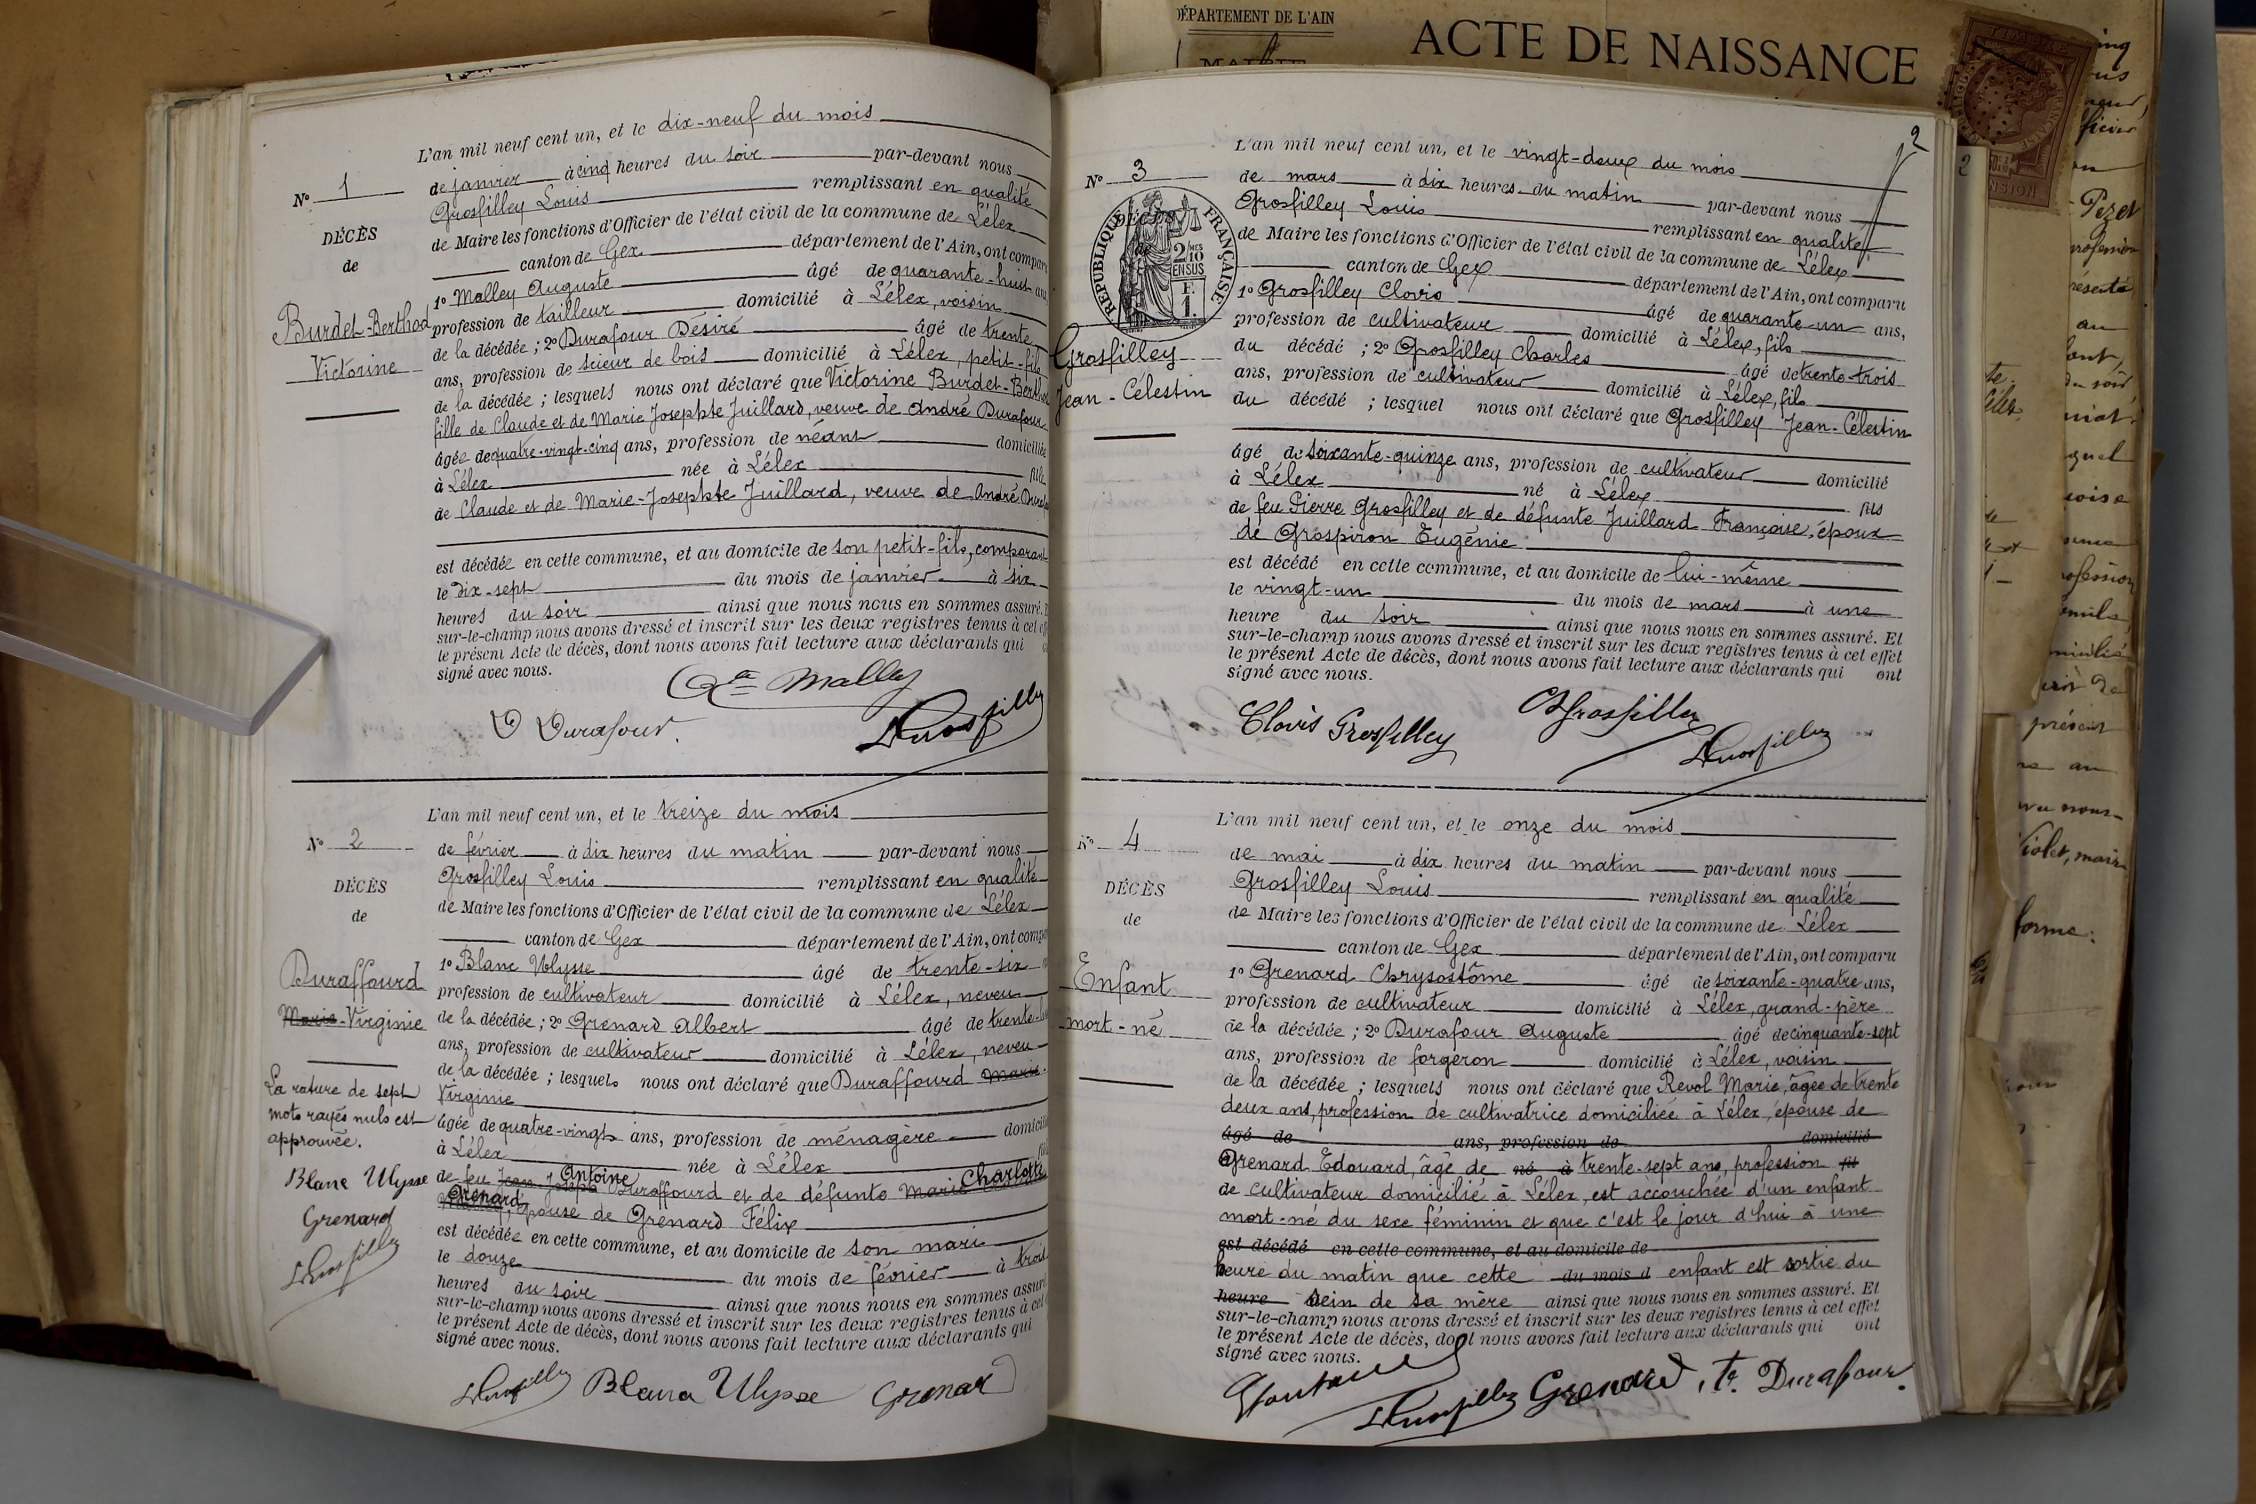 L'an mil neuf cent un, et le dix-neuf du mois
de janvier à cinq heures du soir par-devant nous
Grosfilley Louis remplissant en qualité
de Maire les fonctions d'Officier de l'état civil de la commune de Lélex
canton de Gex département de l'Ain, ont comparu
1º Malley Auguste âgé de quarante-huit ans
profession de tailleur domicilié à Lélex, voisin
de la décédée ; 2º Durafour Désiré âgé de trente
ans, profession de scieur de bois domicilié à Lélex, petit-fils
de la décédée ; lesquels nous ont déclaré que Victorine Burdet-Berthod
fille de Claude et de Marie Josephte Juillard, veuve de André Durafour
âgée de quatre-vingt-cinq ans, profession de néant domiciliée
à Lélex née à Lélex fille
de Claude et de Marie-Josephte Juillard, veuve de André Durafour
est décédée en cette commune, et au domicile de son petit-fils, comparant
le dix-sept du mois de janvier à six
heures du soir ainsi que nous nous en sommes assuré. Et
sur-le-champ nous avons dressé et inscrit sur les deux registres tenus à cet effet
le présent Acte de décès, dont nous avons fait lecture aux déclarants qui
signé avec nous.
Nº 1
DÉCÈS
de
Burdet-Berthod
Victorine
Malley
D Durafour
LGrosfilley
L'an mil neuf cent un, et le treize du mois
de février à dix heures du matin par-devant nous
Grosfilley Louis remplissant en qualité
de Maire les fonctions d'Officier de l'état civil de la commune de Lélex
canton de Gex département de l'Ain, ont comparu
1º Blanc Ulysse âgé de trente-six
profession de cultivateur domicilié à Lélex, neveu
de la décédée ; 2º Grenard Albert âgé de trente
ans, profession de cultivateur domicilié à Lélex, neveu
de la décédée ; lesquels nous ont déclaré que Duraffourd Marie
Virginie
âgée de quatre-vingts ans, profession de ménagère domicilié
à Lélex née à Lélex
de feu Jean Joseph Antoine Duraffourd et de défunte Marie Charlotte
Grenard, épouse de Grenard Félix
est décédée en cette commune, et au domicile de son mari
le douze du mois de février à trois
heures du soir ainsi que nous nous en sommes assuré
sur-le-champ nous avons dressé et inscrit sur les deux registres tenus à cet
le présent Acte de décès, dont nous avons fait lecture aux déclarants qui
signé avec nous.
Nº 2
DÉCÈS
de
Duraffourd
Marie-Virginie
La rature de sept
mots rayés nuls est
approuvée.
Blanc Ulysse
Grenard
LGrosfilley
LGrosfilley Blanc Ulysse Grenard
DÉPARTEMENT DE L'AIN
MAIRIE
ACTE DE NAISSANCE
2
L'an mil neuf cent un, et le vingt-deux du mois
de mars à dix heures du matin par-devant nous
Grosfilley Louis remplissant en qualité
de Maire les fonctions d'Officier de l'état civil de la commune de Lélex
canton de Gex département de l'Ain, ont comparu
1º Grosfilley Clovis âgé de quarante-un ans,
profession de cultivateur domicilié à Lélex, fils
du décédé ; 2º Grosfilley Charles âgé de trente-trois
ans, profession de cultivateur domicilié à Lélex, fils
du décédé ; lesquel nous ont déclaré que Grosfilley Jean-Célestin
âgé de soixante-quinze ans, profession de cultivateur domicilié
à Lélex né à Lélex fils
de feu Pierre Grosfilley et de défunte Juillard Françoise, époux
de Grospiron Eugénie
est décédé en cette commune, et au domicile de lui-même
le vingt-un du mois de mars à une
heure du soir ainsi que nous nous en sommes assuré. Et
sur-le-champ nous avons dressé et inscrit sur les deux registres tenus à cet effet
le présent Acte de décès, dont nous avons fait lecture aux déclarants qui ont
signé avec nous.
Nº 3
DÉCÈS
de
RÉPUBLIQUE FRANÇAISE
2 MES
10
EN SUS
F.
1.
Grosfilley
Jean-Célestin
Clovis Grosfilley
ChGrosfilley
LGrosfilley
L'an mil neuf cent un, et le onze du mois
de mai à dix heures du matin par-devant nous
Grosfilley Louis remplissant en qualité
de Maire les fonctions d'Officier de l'état civil de la commune de Lélex
canton de Gex département de l'Ain, ont comparu
1º Grenard Chrysostôme âgé de soixante-quatre ans,
profession de cultivateur domicilié à Lélex, grand-père
de la décédée ; 2º Durafour Auguste âgé de cinquante-sept
ans, profession de forgeron domicilié à Lélex, voisin
de la décédée ; lesquels nous ont déclaré que Revol Marie, âgée de trente
deux ans, profession de cultivatrice domiciliée à Lélex, épouse de
âgé de ans, profession de domicilié
Grenard Edouard, âgé de né à trente-sept ans, profession fil
de cultivateur domicilié à Lélex, est accouchée d'un enfant
mort-né du sexe féminin et que c'est le jour d'hui à une
est décédé en cette commune, et au domicile de
heure du matin que cette du mois d enfant est sortie du
heure sein de sa mère ainsi que nous nous en sommes assuré. Et
sur-le-champ nous avons dressé et inscrit sur les deux registres tenus à cet effet
le présent Acte de décès, dont nous avons fait lecture aux déclarants qui ont
signé avec nous.
Nº 4
DÉCÈS
de
Enfant
mort-né
LGrosfilley Grenard, Durafour.
Pezet
profession
an
présent
Violet, maire
forme: